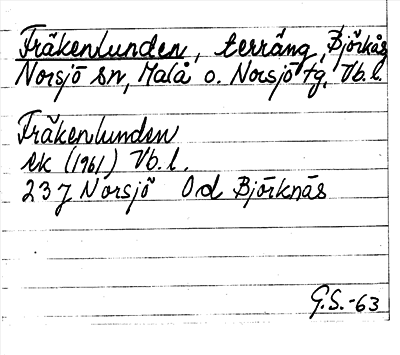 Fräkenlunden, terräng, Björkås
Norsjö sn, Malå o. Norsjö tg, Vb. l.
Fräkenlunden
ek (1961) Vb. l.
23 J Norsjö 0d Björknäs
G.S.-63